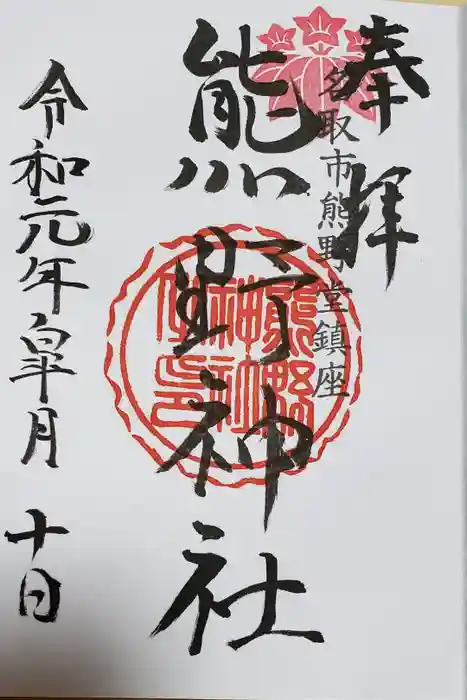 奉拝
名取市熊野堂鎮座
熊野神社
令和元年皐月十日